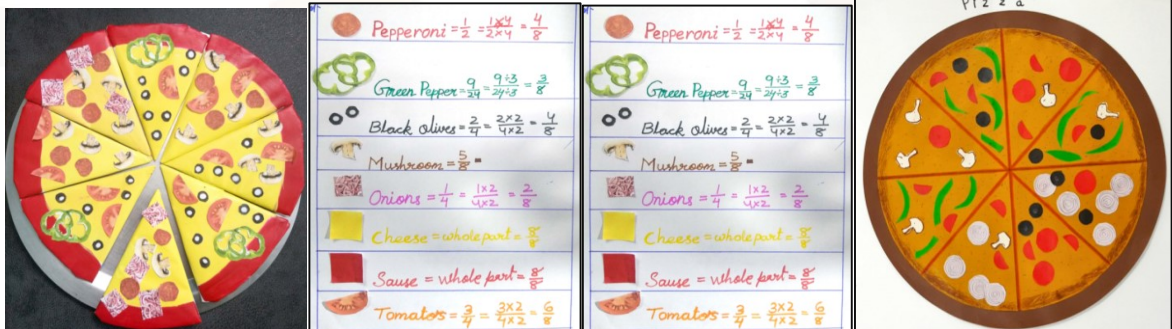 Pepperoni = 1/2 = 1x4/2x4 = 4/8
Green Pepper = 9/24 = 9÷3/24÷3 = 3/8
Black olives = 2/4 = 2x2/4x2 = 4/8
Mushroom = 5/8 =
Onions = 1/4 = 1x2/4x2 = 2/8
Cheese = whole part = 8/8
Sause = whole part = 8/8
Tomatoes = 3/4 = 3x2/4x2 = 6/8
Pepperoni = 1/2 = 1x4/2x4 = 4/8
Green Pepper = 9/24 = 9÷3/24÷3 = 3/8
Black olives = 2/4 = 2x2/4x2 = 4/8
Mushroom = 5/8 =
Onions = 1/4 = 1x2/4x2 = 2/8
Cheese = whole part = 8/8
Sause = whole part = 8/8
Tomatoes = 3/4 = 3x2/4x2 = 6/8
Pizza